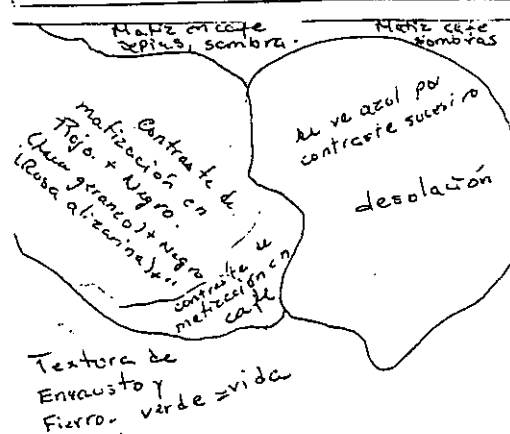 Matiz en cafe
sepias, sombra.
Matiz cafe
sombras
Contraste de
matización en
Rojo. + Negro.
geraneo) + Negro
(Rosa alizarina) + "
contraste de
matización en
cafe
se ve azul por
contraste sucesivo
desolación
Textura de
Encausto y
Fierro. verde = vida